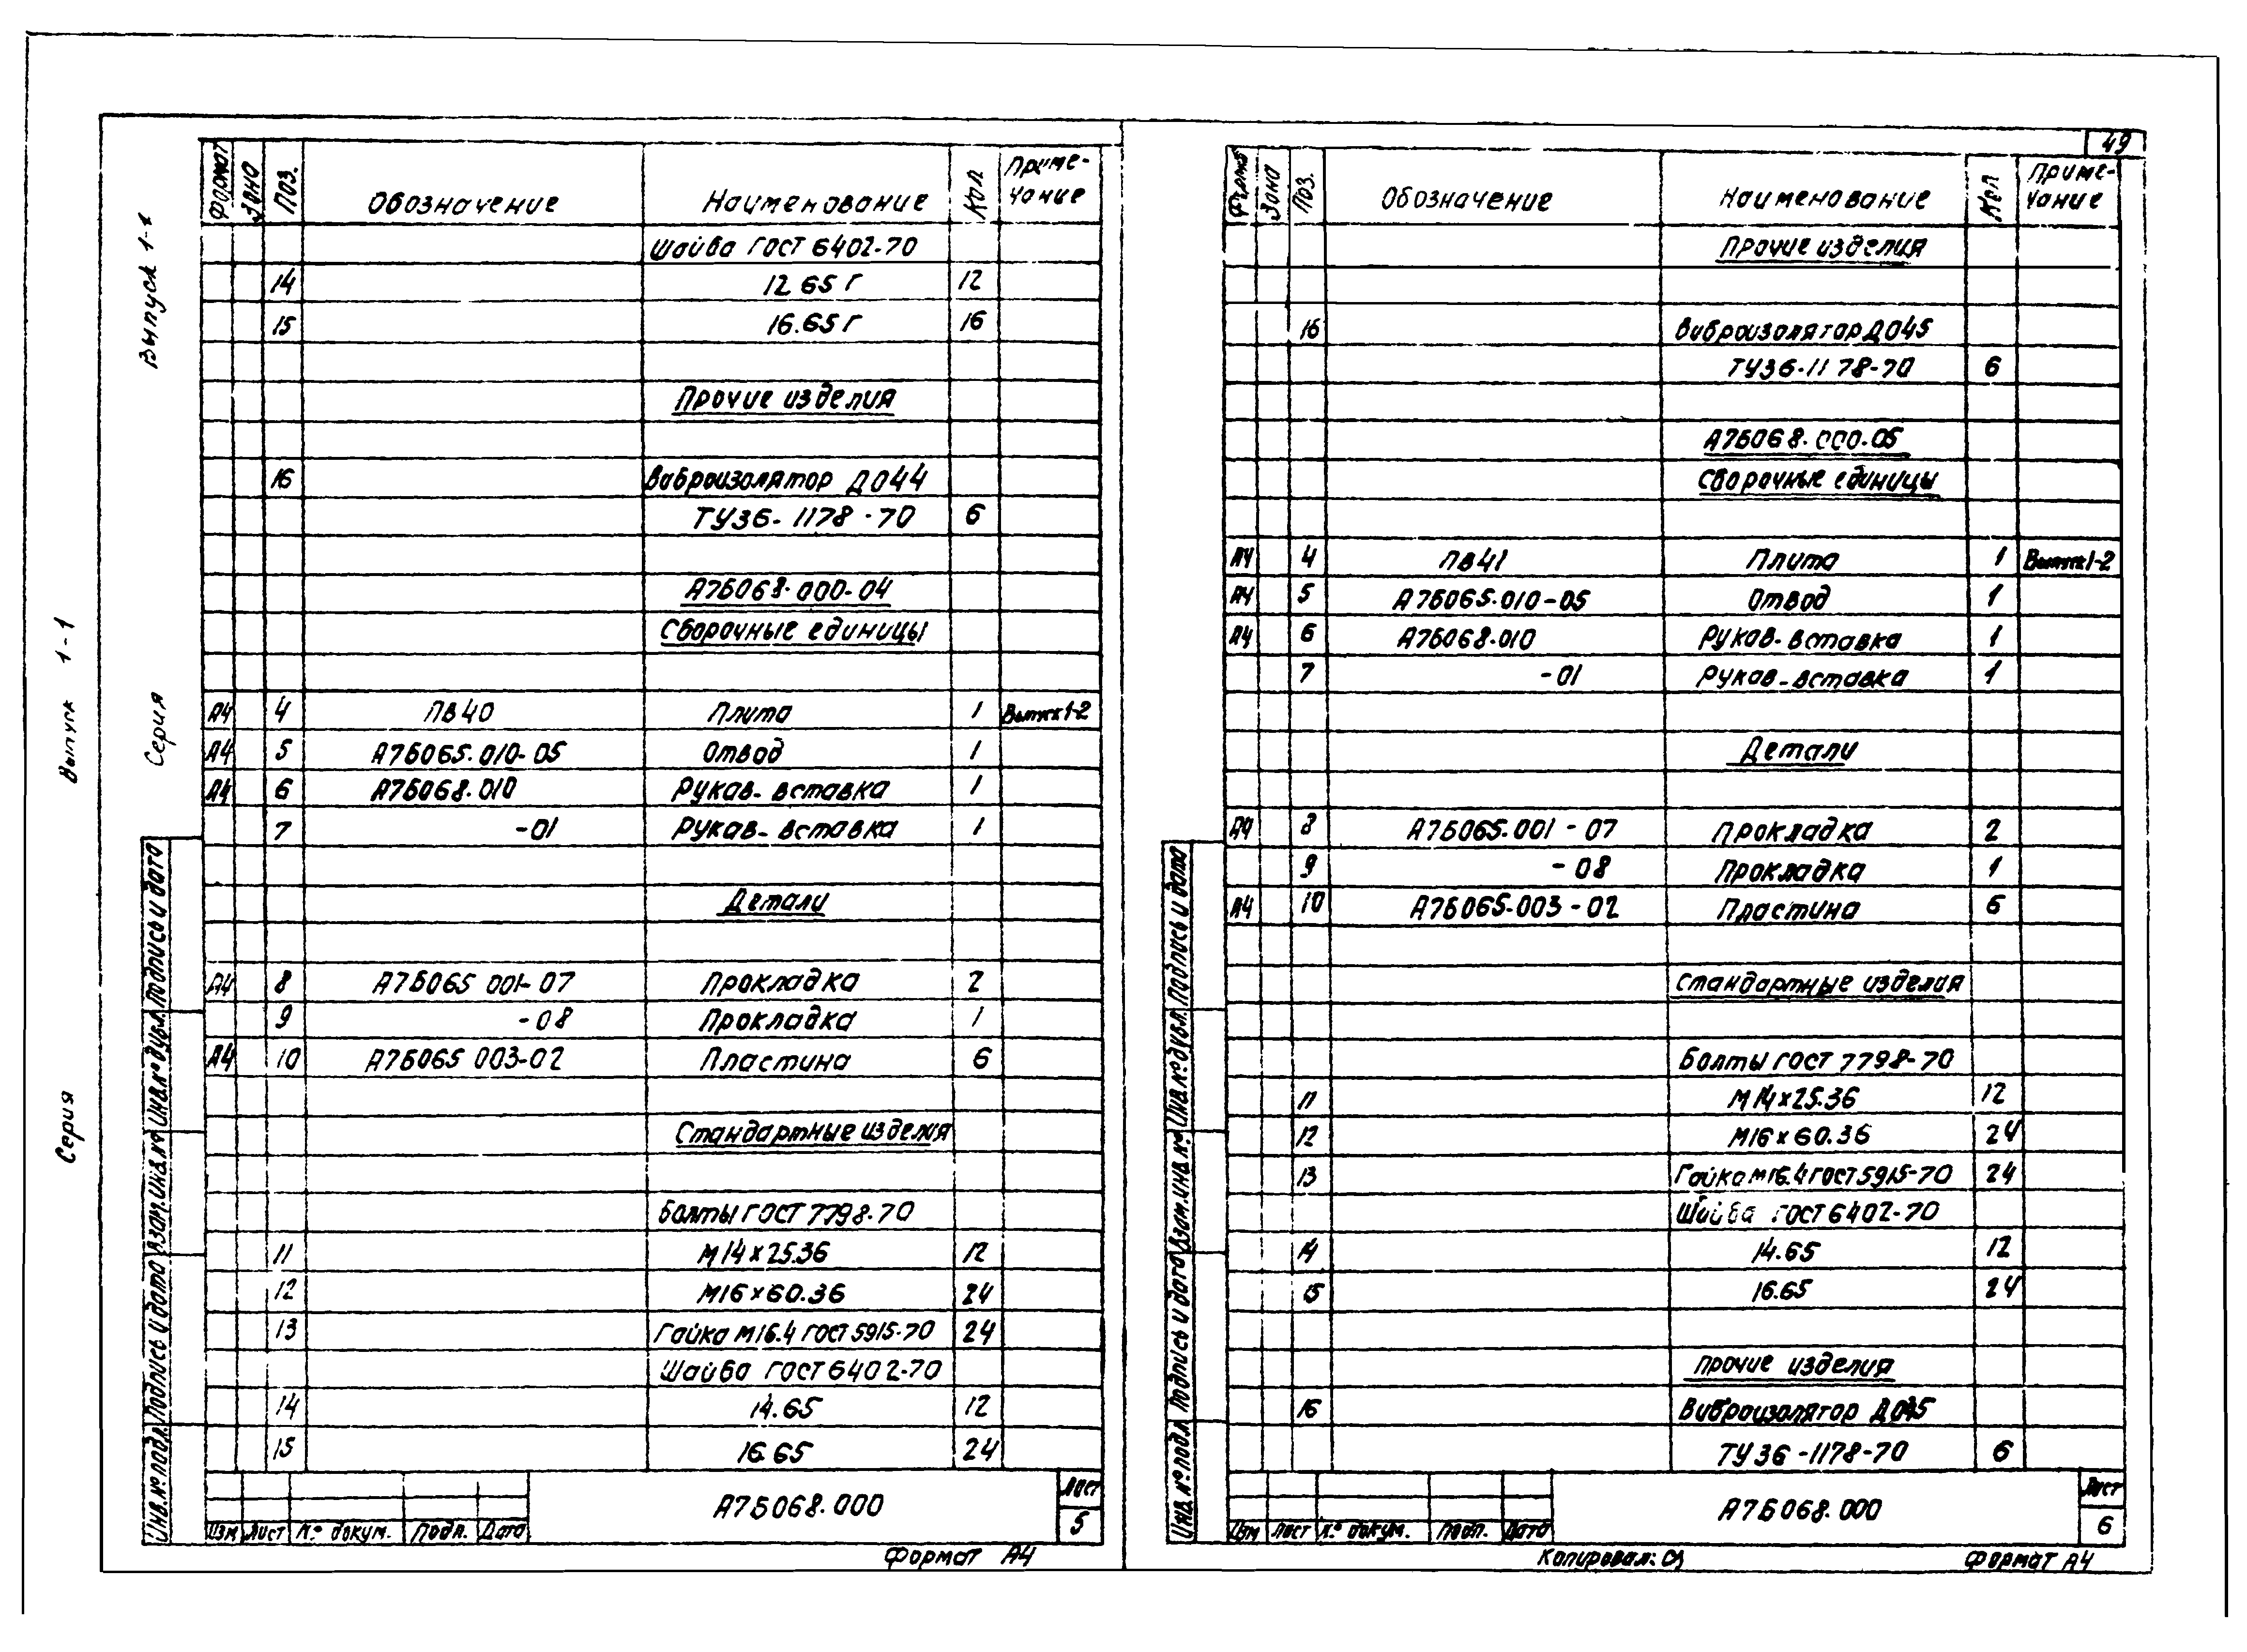 49
Выпуск 1-1
Серия
Выпуск 1-1
Серия
Формат Зона Поз. Обозначение Наименование Кол Приме-чание
Шайба ГОСТ 6402-70
14 12 65 Г 12
15 16.65 Г 16
Прочие изделия
16 Виброизолятор Д044
ТУ36-1178-70 6
А7Б068.000-04
Сборочные единицы
А4 4 ПВ40 Плита 1 Выпуск 1-2
А4 5 А7Б065.010-05 Отвод 1
А4 6 А7Б068.010 Рукав-вставка 1
7 -01 Рукав-вставка 1
Детали
А4 8 А7Б065 001-07 Прокладка 2
9 -08 Прокладка 1
А4 10 А7Б065 003-02 Пластина 6
Стандартные изделия
Болты ГОСТ 7798-70
11 М14х25.36 12
12 М16х60.36 24
13 Гайка М16.4 ГОСТ 5915-70 24
Шайба ГОСТ 6402-70
14 14.65 12
15 16.65 24
Инв.№ подл. Подпись и дата Взам.инв.№ Инв.№ дубл. Подпись и дата
Изм Лист №° докум. Подп. Дата
А7Б068.000
Лист
5
Формат А4
Формат Зона Поз. Обозначение Наименование Кол Приме-чание
Прочие изделия
16 Виброизолятор Д045
ТУ36-1178-70 6
А7Б068.000-05
Сборочные единицы
А4 4 ПВ41 Плита 1 Выпуск 1-2
А4 5 А7Б065.010-05 Отвод 1
А4 6 А7Б068.010 Рукав-вставка 1
7 -01 Рукав-вставка 1
Детали
А4 8 А7Б065.001-07 Прокладка 2
9 -08 Прокладка 1
А4 10 А7Б065.003-02 Пластина 6
Стандартные изделия
Болты ГОСТ 7798-70
11 М14х25.36 12
12 М16х60.36 24
13 Гайка М16.4 ГОСТ 5915-70 24
Шайба ГОСТ 6402-70
14 14.65 12
15 16.65 24
Прочие изделия
16 Виброизолятор Д045
ТУ 36-1178-70 6
Инв.№ подл. Подпись и дата Взам.инв.№ Инв.№ дубл. Подпись и дата
Изм Лист №° докум. Подп. Дата
А7Б068.000
Лист
6
Копировал:
Формат А4